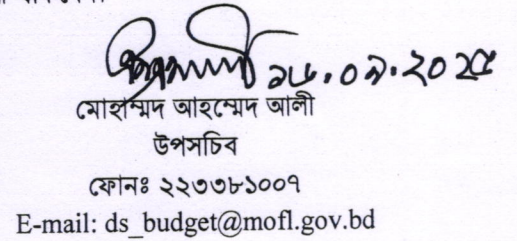 ১৮.০৯.২০২৫
মোহাম্মদ আহম্মেদ আলী
উপসচিব
ফোনঃ ২২৩৩৮১০০৭
E-mail: ds_budget@mofl.gov.bd